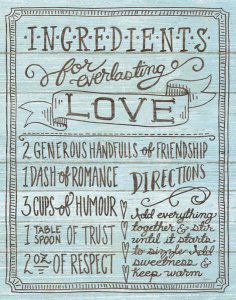 INGREDIENTS
for everlasting
LOVE
2 GENEROUS HANDFULS of FRIENDSHIP
1 DASH of ROMANCE
3 CUPS of HUMOUR
1 TABLE SPOON OF TRUST
2 OZ OF RESPECT
DIRECTIONS
Add everything
together & stir
until it starts
to sizzle. Add
sweetness &
keep warm